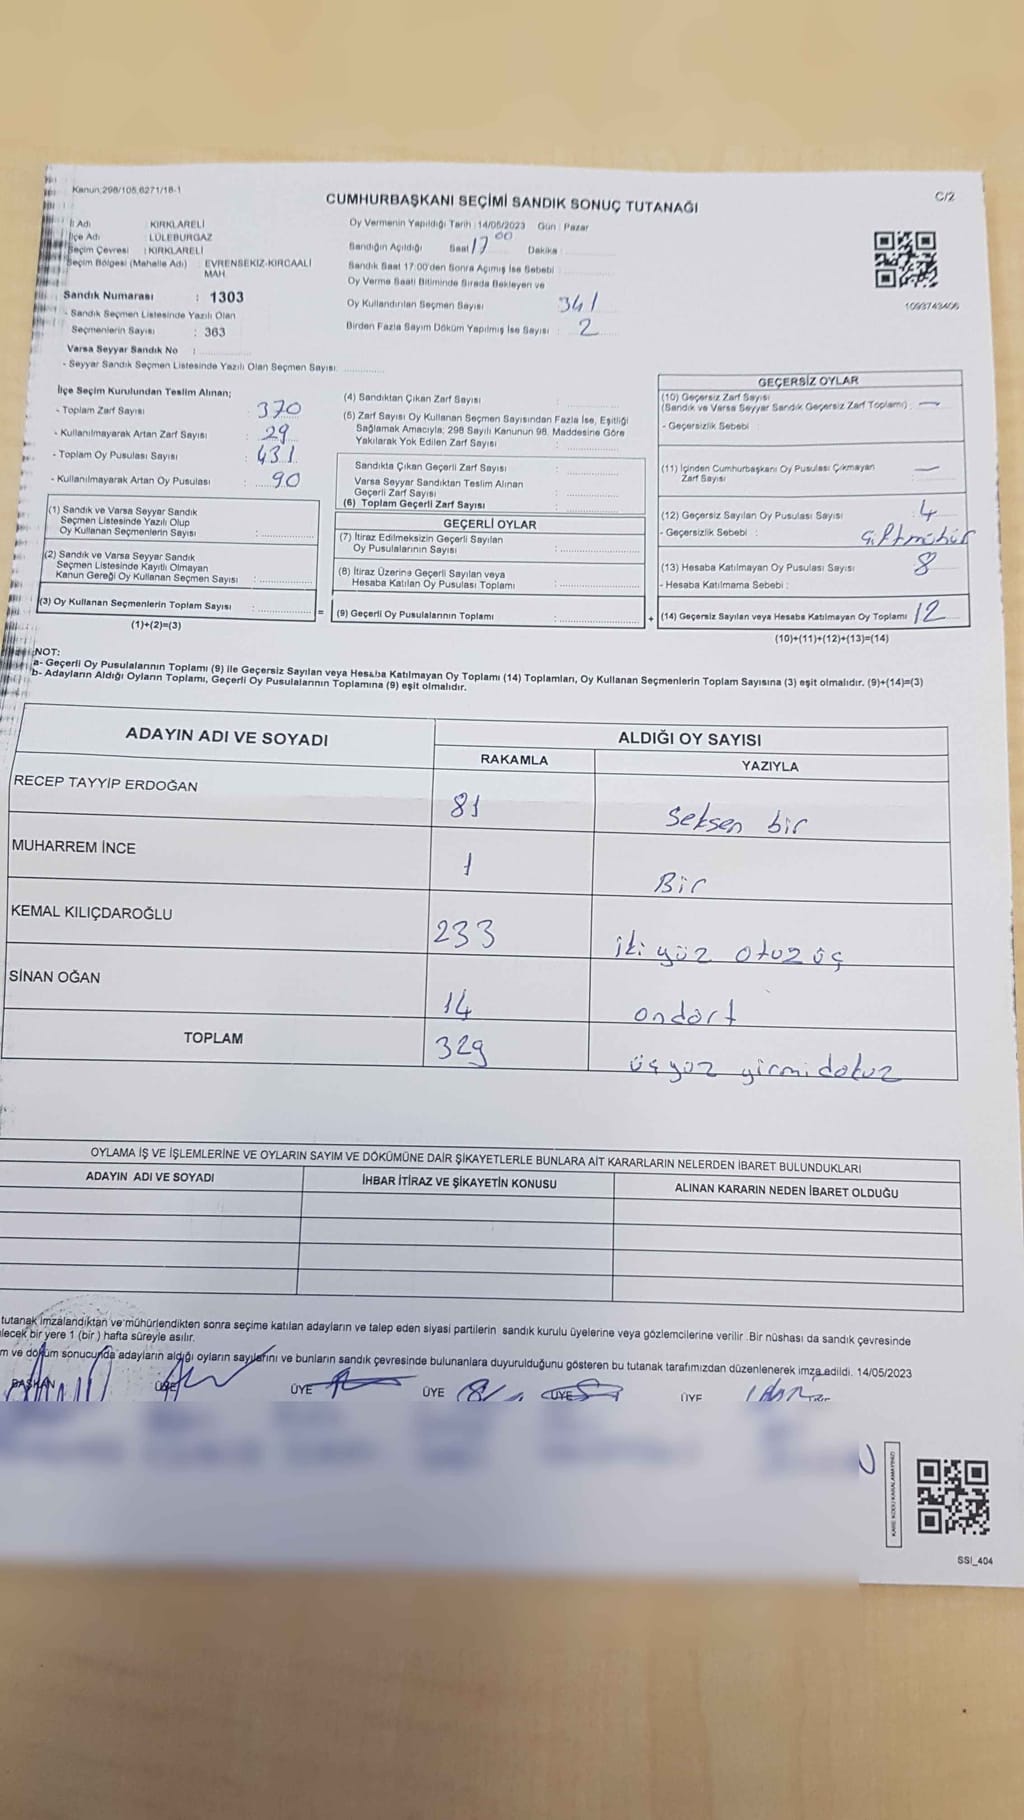 Kanun;298/105,6271/18-1
C/2
CUMHURBAŞKANI SEÇİMİ SANDIK SONUÇ TUTANAĞI
İl Adı : KIRKLARELİ
İlçe Adı : LÜLEBURGAZ
Seçim Çevresi : KIRKLARELİ
Seçim Bölgesi (Mahalle Adı) : EVRENSEKIZ-KIRCAALİ MAH.
Sandık Numarası : 1303
- Sandık Seçmen Listesinde Yazılı Olan
Seçmenlerin Sayısı : 363
Varsa Seyyar Sandık No :
- Seyyar Sandık Seçmen Listesinde Yazılı Olan Seçmen Sayısı:
Oy Vermenin Yapıldığı Tarih : 14/05/2023 Gün : Pazar
Sandığın Açıldığı Saat 17 00 Dakika :
Sandık Saat 17:00'den Sonra Açımış İse Sebebi :
Oy Verme Saati Bitiminde Sırada Bekleyen ve
Oy Kullandırılan Seçmen Sayısı : 341
Birden Fazla Sayım Döküm Yapılmış İse Sayısı : 2
1093743406
İlçe Seçim Kurulundan Teslim Alınan;
- Toplam Zarf Sayısı : 370
- Kullanılmayarak Artan Zarf Sayısı : 29
- Toplam Oy Pusulası Sayısı : 431
- Kullanılmayarak Artan Oy Pusulası : 90
(1) Sandık ve Varsa Seyyar Sandık
Seçmen Listesinde Yazılı Olup
Oy Kullanan Seçmenlerin Sayısı :
(2) Sandık ve Varsa Seyyar Sandık
Seçmen Listesinde Kayıtlı Olmayan
Kanun Gereği Oy Kullanan Seçmen Sayısı :
(3) Oy Kullanan Seçmenlerin Toplam Sayısı :
(1)+(2)=(3)
=
(4) Sandıktan Çıkan Zarf Sayısı :
(5) Zarf Sayısı Oy Kullanan Seçmen Sayısından Fazla İse, Eşitliği
Sağlamak Amacıyla; 298 Sayılı Kanunun 98. Maddesine Göre
Yakılarak Yok Edilen Zarf Sayısı :
Sandıkta Çıkan Geçerli Zarf Sayısı :
Varsa Seyyar Sandıktan Teslim Alınan
Geçerli Zarf Sayısı :
(6) Toplam Geçerli Zarf Sayısı :
GEÇERLİ OYLAR
(7) İtiraz Edilmeksizin Geçerli Sayılan
Oy Pusulalarının Sayısı :
(8) İtiraz Üzerine Geçerli Sayılan veya
Hesaba Katılan Oy Pusulası Toplamı :
(9) Geçerli Oy Pusulalarının Toplamı :
+
GEÇERSİZ OYLAR
(10) Geçersiz Zarf Sayısı
(Sandık ve Varsa Seyyar Sandık Geçersiz Zarf Toplamı) : —
- Geçersizlik Sebebi :
(11) İçinden Cumhurbaşkanı Oy Pusulası Çıkmayan
Zarf Sayısı : —
(12) Geçersiz Sayılan Oy Pusulası Sayısı : 4
- Geçersizlik Sebebi : Çiftmühür
(13) Hesaba Katılmayan Oy Pusulası Sayısı : 8
- Hesaba Katılmama Sebebi :
(14) Geçersiz Sayılan veya Hesaba Katılmayan Oy Toplamı : 12
(10)+(11)+(12)+(13)=(14)
NOT:
a- Geçerli Oy Pusulalarının Toplamı (9) ile Geçersiz Sayılan veya Hesaba Katılmayan Oy Toplamı (14) Toplamları, Oy Kullanan Seçmenlerin Toplam Sayısına (3) eşit olmalıdır. (9)+(14)=(3)
b- Adayların Aldığı Oyların Toplamı, Geçerli Oy Pusulalarının Toplamına (9) eşit olmalıdır.
ADAYIN ADI VE SOYADI ALDIĞI OY SAYISI
RAKAMLA YAZIYLA
RECEP TAYYİP ERDOĞAN 81 Seksen bir
MUHARREM İNCE 1 Bir
KEMAL KILIÇDAROĞLU 233 iki yüz otuz üç
SİNAN OĞAN 14 ondört
TOPLAM 329 üçyüz yirmidokuz
OYLAMA İŞ VE İŞLEMLERİNE VE OYLARIN SAYIM VE DÖKÜMÜNE DAİR ŞİKAYETLERLE BUNLARA AİT KARARLARIN NELERDEN İBARET BULUNDUKLARI
ADAYIN ADI VE SOYADI İHBAR İTİRAZ VE ŞİKAYETİN KONUSU ALINAN KARARIN NEDEN İBARET OLDUĞU
tutanak imzalandıktan ve mühürlendikten sonra seçime katılan adayların ve talep eden siyasi partilerin sandık kurulu üyelerine veya gözlemcilerine verilir .Bir nüshası da sandık çevresinde
lecek bir yere 1 (bir ) hafta süreyle asılır.
m ve döküm sonucunda adayların aldığı oyların sayılarını ve bunların sandık çevresinde bulunanlara duyurulduğunu gösteren bu tutanak tarafımızdan düzenlenerek imza edildi. 14/05/2023
BAŞKAN ÜYE ÜYE ÜYE ÜYE ÜYE
KARE KODU KARALAMAYINIZ!
SSI_404